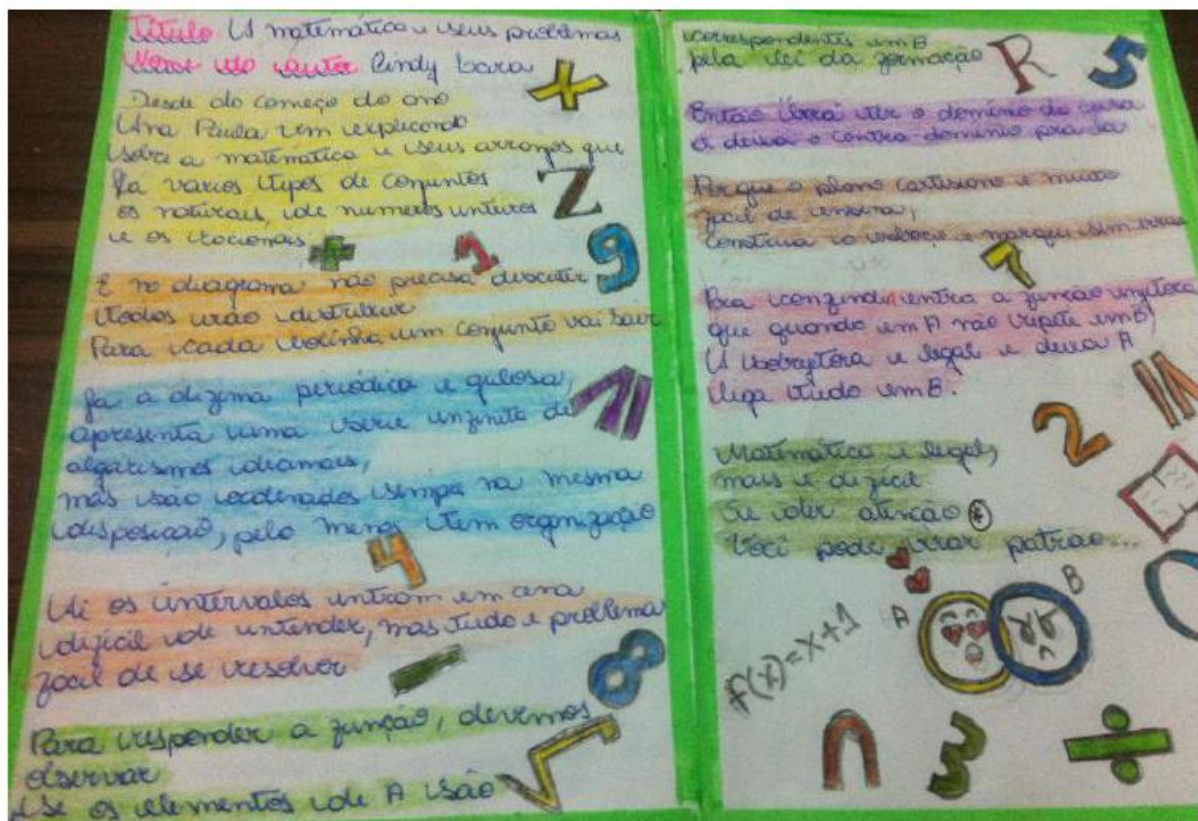 Título A matemática e seus problemas
Nome do autor Cindy Lara
Desde do começo do ano
Ana Paula vem explicando
sobre a matemática e seus arranjos que
Ja varios tipos de conjuntos
os naturais, de numeros inteiros
e os racionais
+ 1 9
X
Z
E no diagrama não precisa descutir
todos irão distribuir
Para cada bolinha um conjunto vai sair
Ja a dizima periódica e gulosa,
apresenta uma serie infinita de
algarismos decimais,
mas são ordenados sempre na mesma
disposição, pelo menos tem organização
4
Ai os intervalos entram em cena
dificil de entender, mas tudo e problema
facil de se resolver
8
Para responder a função, devemos
observar
se os elementos de A são
√
correspondentes em B
pela lei da formação
R 5
Então irá ver o domínio da
a deixa o contra domínio pra la
Porque o plano cartesiano e muito
facil de ensina,
construa o esboço e marque sem errar
7
Pra confundi entra a função injetora
que quando em A não repete em B,
A sobrejetora e legal e deixa A
liga tudo em B.
2
Matemática e legal,
mais e dificil
Se der atenção *
Você pode errar patrão...
f(x)=x+1
A B
∩ 3 ÷